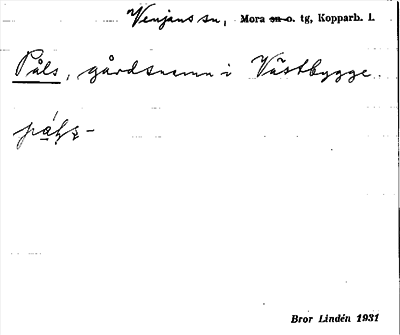 Venjans sn, Mora sn o. tg, Kopparb. l.
Påls, gårdsnamn i Västbygge.
Bror Lindén 1931